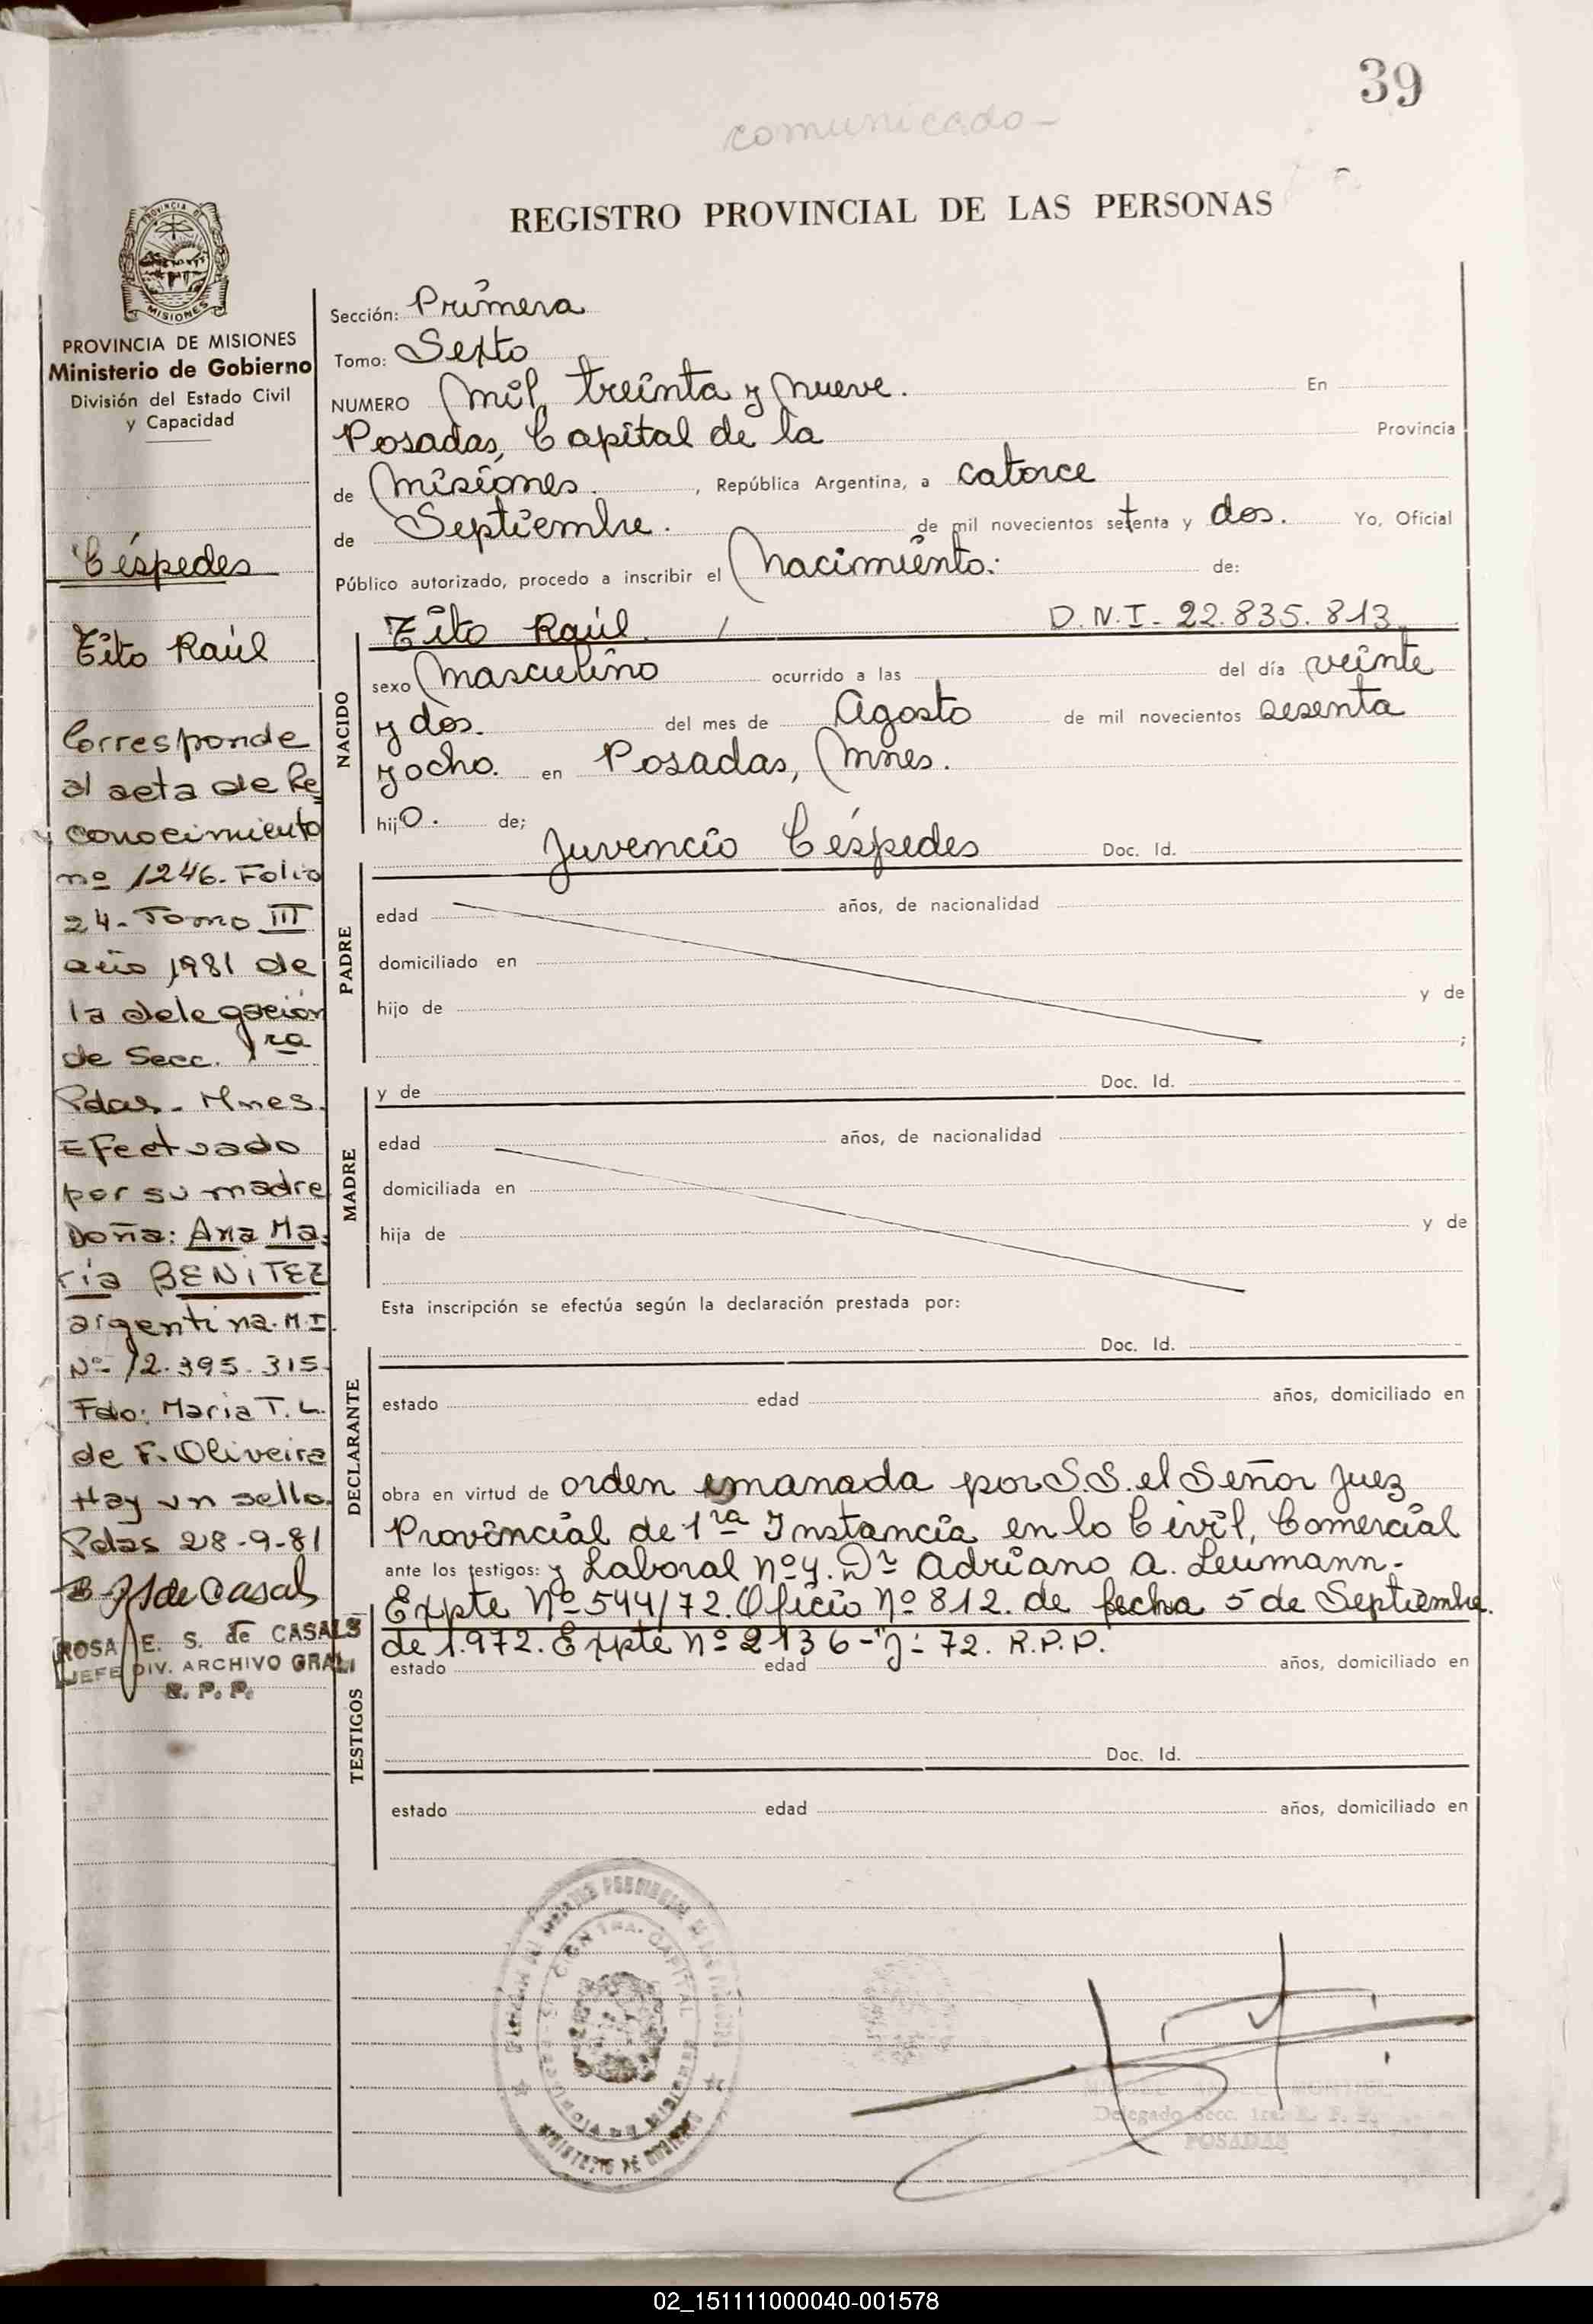 39
comunicado-
REGISTRO PROVINCIAL DE LAS PERSONAS
PROVINCIA DE
MISIONES
PROVINCIA DE MISIONES
Ministerio de Gobierno
División del Estado Civil
y Capacidad
Céspedes
Tito Raúl
Corresponde
al acta de Re
conocimiento
nº 1246. Folio
24- Tomo III
año 1981 de
la delegación
de Secc. 1ra
Pdas. Mnes.
Efectuado
por su madre
Doña: Ana Ma
ría BENITEZ
argentina. M.I.
Nº 12.395.315.
Fdo: Maria T. L.
de F. Oliveira
Hay un sello.
Pdas 28-9-81
ROSA E. S. de CASALS
JEFE DIV. ARCHIVO GRAL
R. P. P.
Sección: Primera
Tomo: Sexto
NUMERO mil treinta y nueve. En
Posadas, Capital de la Provincia
de Misiones. , República Argentina, a catorce
de Septiembre. de mil novecientos setenta y dos. Yo, Oficial
Público autorizado, procedo a inscribir el Nacimiento: de:
Tito Raúl. / D.N.I- 22.835.813.
NACIDO
sexo masculino ocurrido a las del día veinte
y dos. del mes de Agosto de mil novecientos sesenta
y ocho. en Posadas, Mnes.
hijo. de;
Juvencio Céspedes Doc. Id.
PADRE
edad años, de nacionalidad
domiciliado en
hijo de y de
;
y de Doc. Id.
MADRE
edad años, de nacionalidad
domiciliada en
hija de y de
Esta inscripción se efectúa según la declaración prestada por:
Doc. Id.
DECLARANTE
estado edad años, domiciliado en
obra en virtud de orden emanada por S.S. el Señor Juez
Provincial de 1ra Instancia en lo Civil, Comercial
ante los testigos: y Laboral nº 4. Dr Adriano A. Leumann.-
Expte Nº 544/72. Oficio nº 812. de fecha 5 de Septiembre.
de 1.972. Expte nº 2136-"J"- 72. R.P.P.
TESTIGOS
estado edad años, domiciliado en
Doc. Id.
estado edad años, domiciliado en
CAPITAL
MINISTERIO DE GOBIERNO
Delegado Secc. 1ra. R. P. P.
POSADAS
02_151111000040-001578